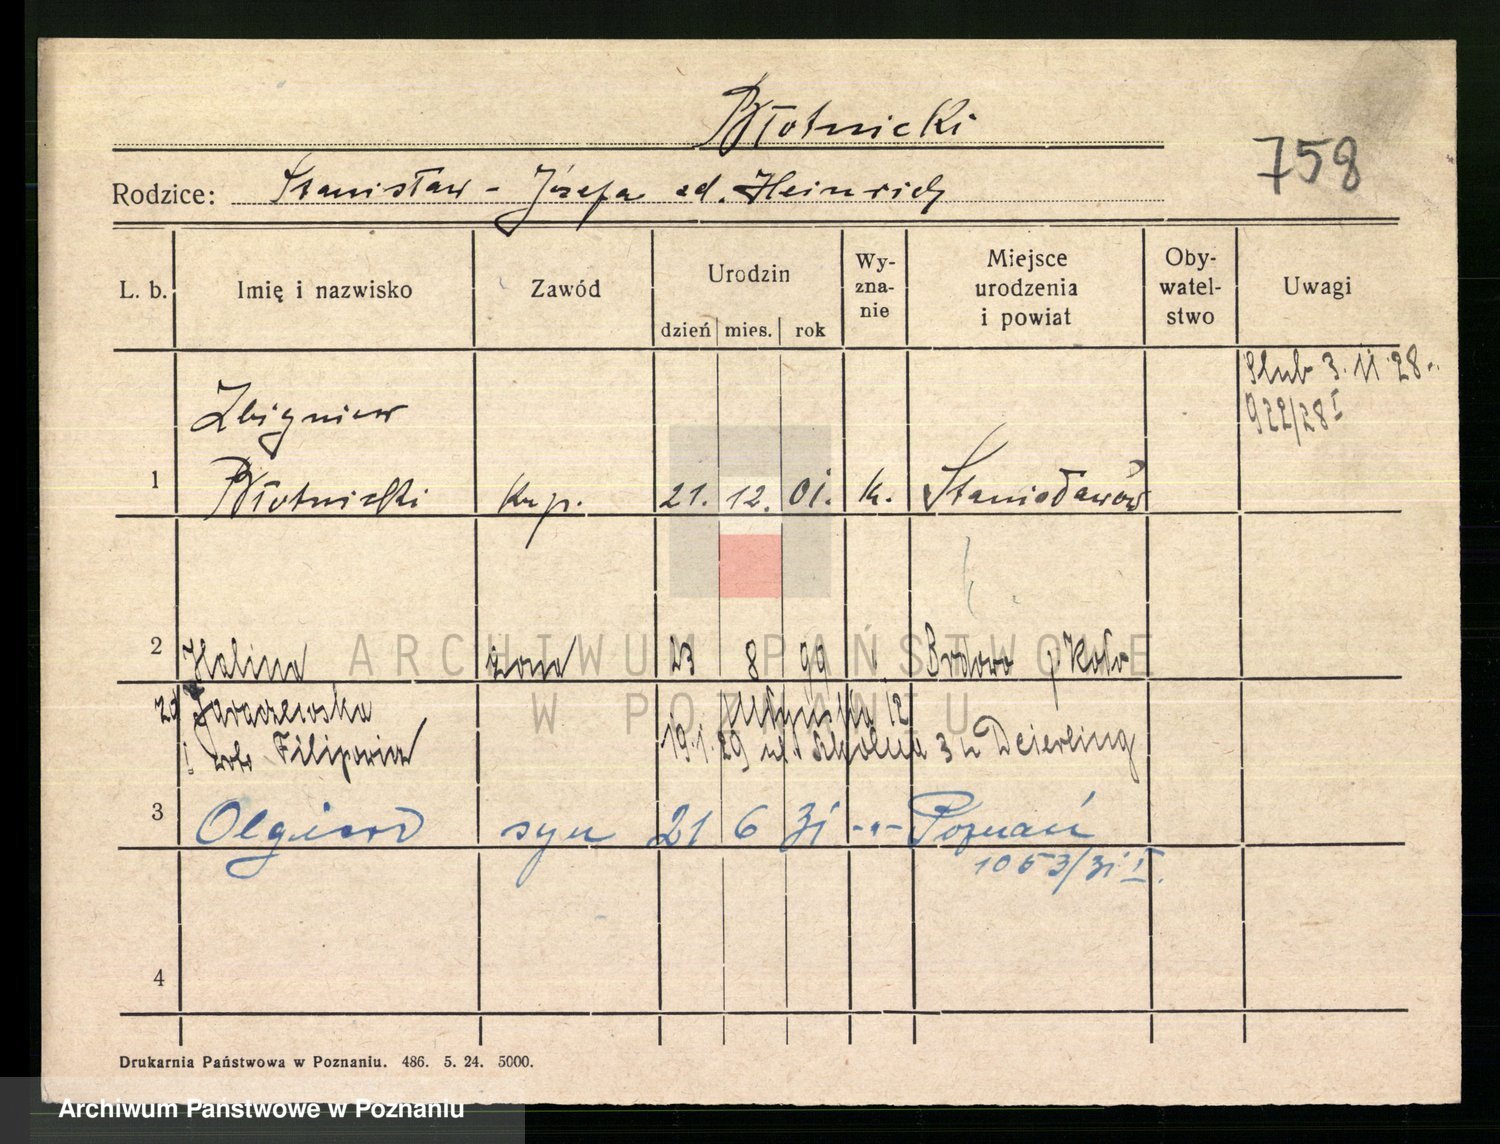 Błotnicki
758
Rodzice: Stanisław - Józefa zd. Heinrich
L. b. Imię i nazwisko Zawód Urodzin Wy- zna- nie Miejsce urodzenia i powiat Oby- watel- stwo Uwagi
dzień mies. rok
Ślub 3.11.28.
922/28 I
Zbigniew
1 Błotnicki kup. 21. 12. 01. k. Stanisławów
2 Halina żona 23 8 99 Brdowo p Koło
Jaraczewska
zd Filipowicz 19.1.29 ul. Szkolna 3 u Deierling
3 Olgierd syn 21 6 31 -"- Poznań
1053/31 I.
4
Drukarnia Państwowa w Poznaniu. 486. 5. 24. 5000.
ARCHIWUM PAŃSTWOWE
W POZNANIU
Archiwum Państwowe w Poznaniu